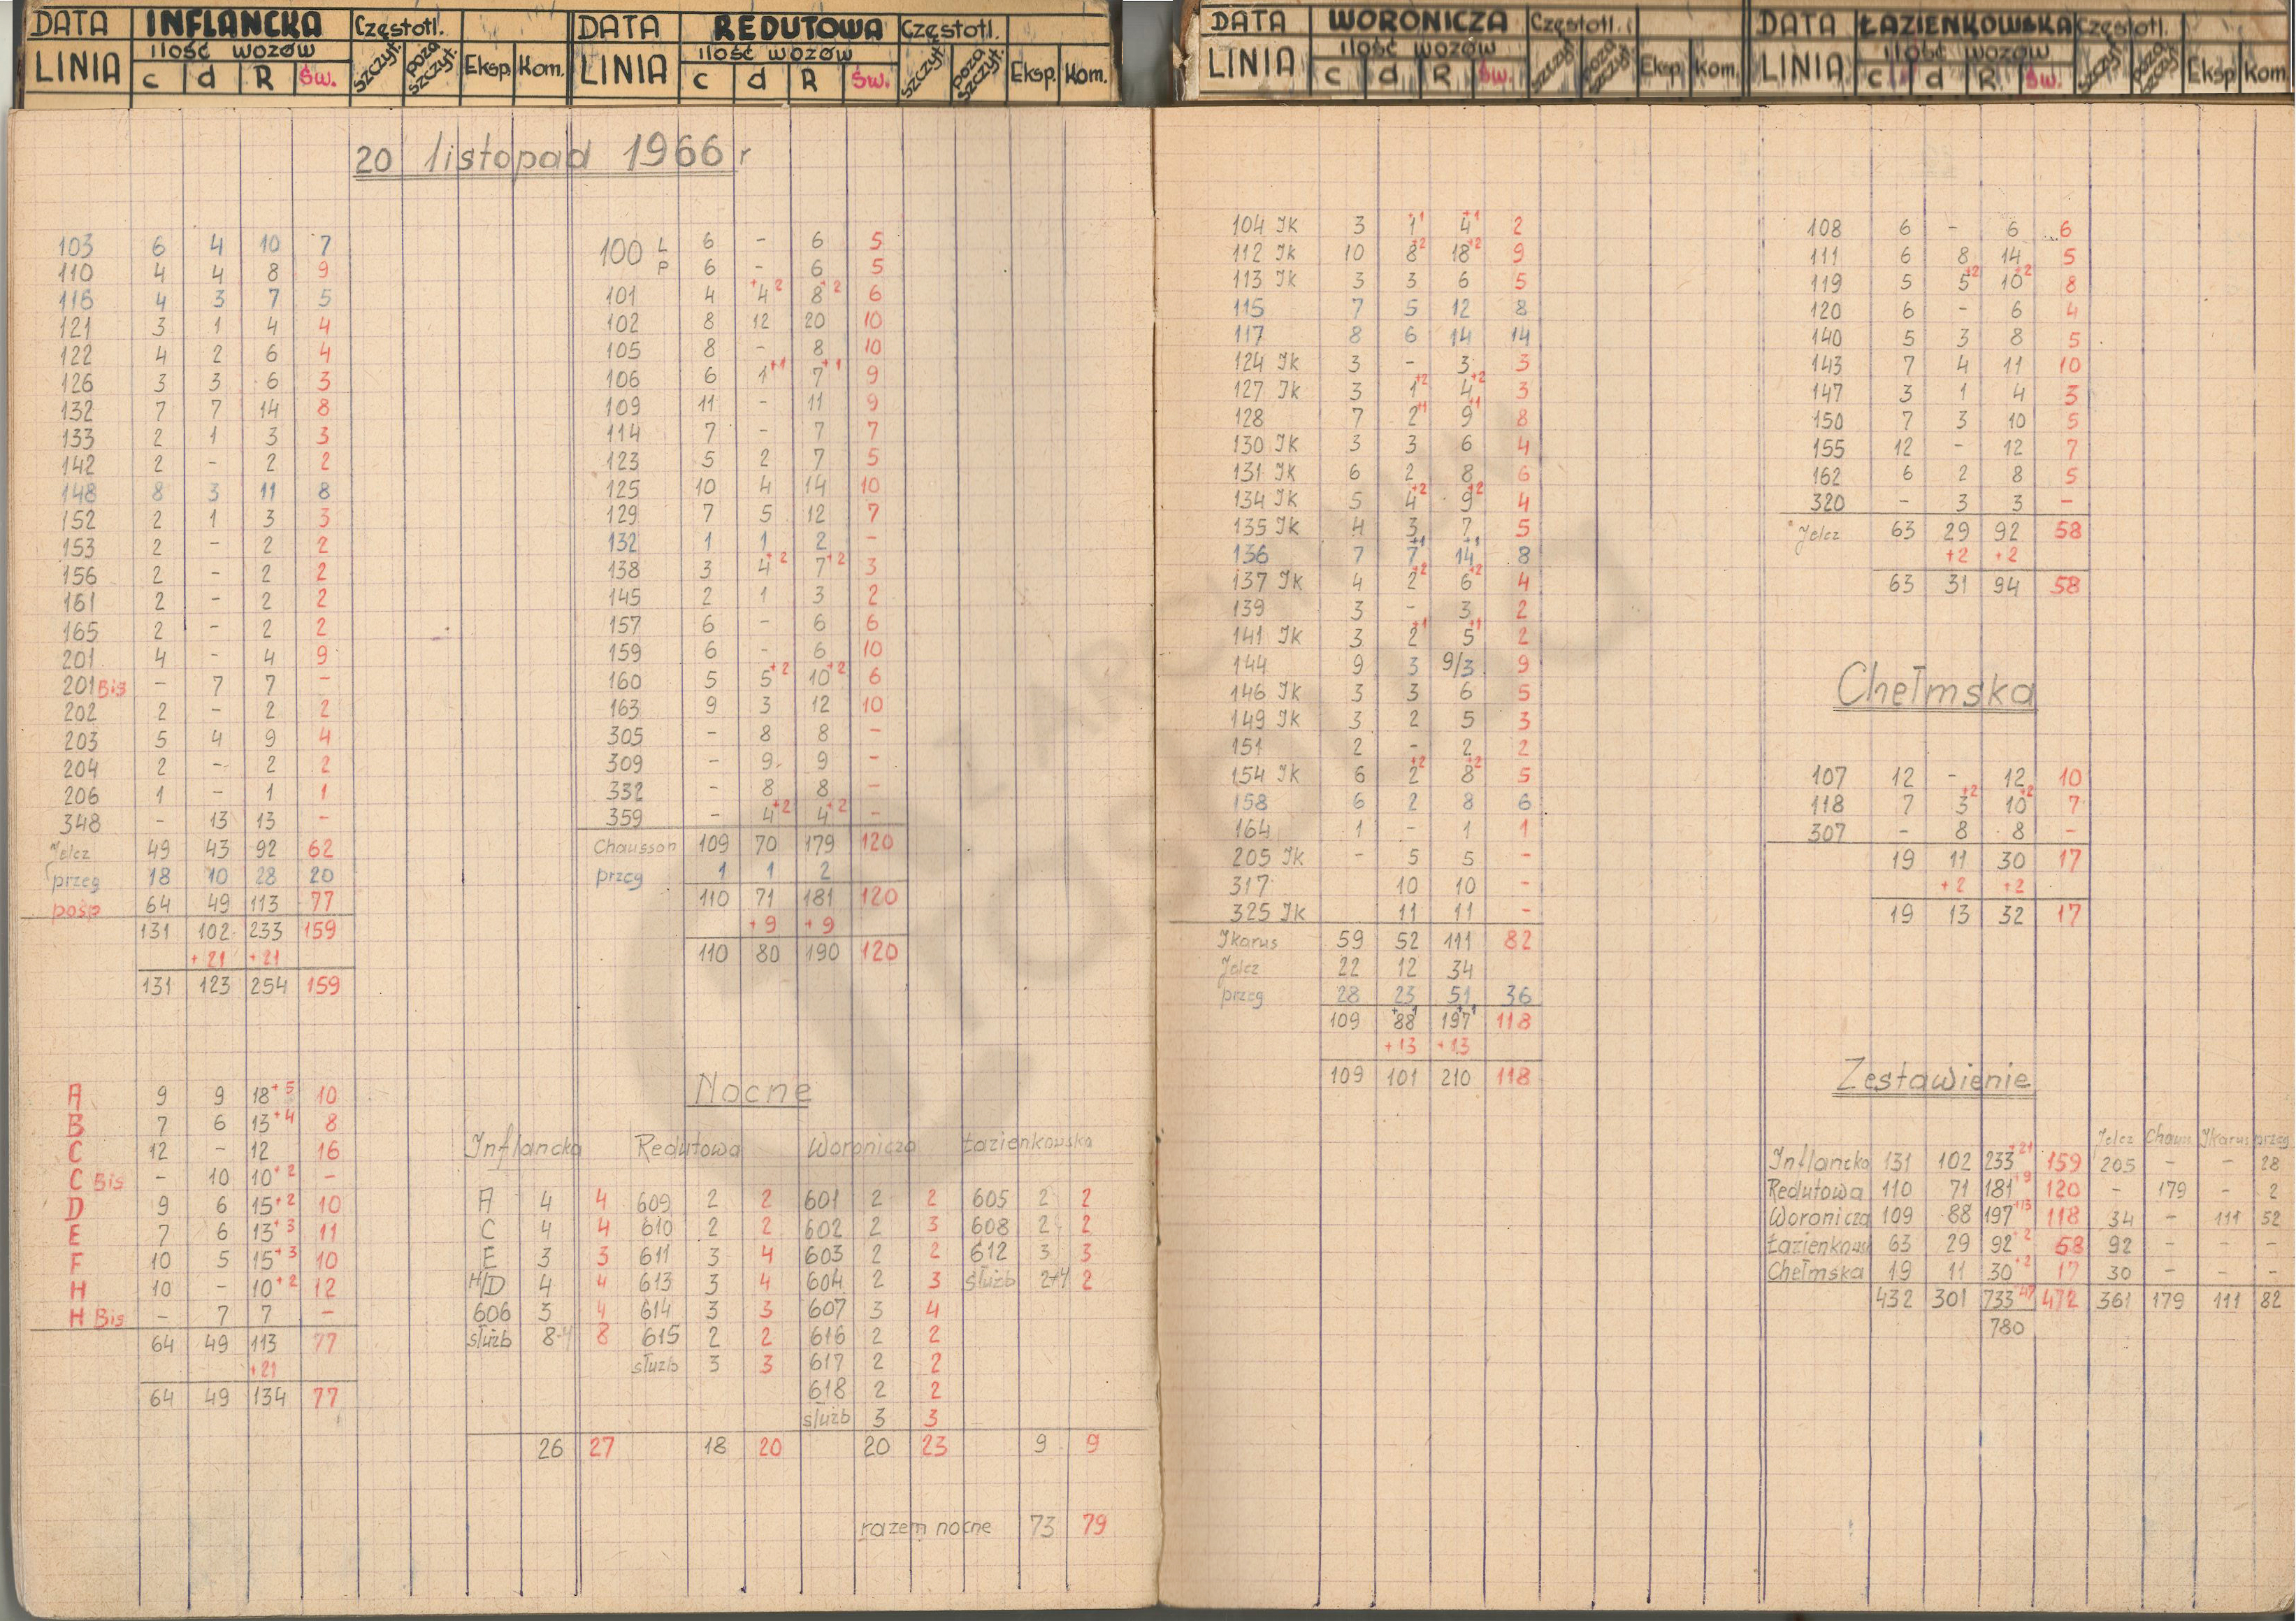 DATA INFLANCKA Częstotl.
LINIA ilość wozów
c d R Św. szczyt. poza szczyt. Eksp. Kom.
DATA REDUTOWA Częstotl.
LINIA ilość wozów
c d R Św. szczyt. poza szczyt. Eksp. Kom.
20 listopad 1966 r
103 6 4 10 7
110 4 4 8 9
116 4 3 7 5
121 3 1 4 4
122 4 2 6 4
126 3 3 6 3
132 7 7 14 8
133 2 1 3 3
142 2 - 2 2
148 8 3 11 8
152 2 1 3 3
153 2 - 2 2
156 2 - 2 2
161 2 - 2 2
165 2 - 2 2
201 4 - 4 9
201 Bis - 7 7 -
202 2 - 2 2
203 5 4 9 4
204 2 - 2 2
206 1 - 1 1
348 - 13 13 -
Jelcz 49 43 92 62
przeg 18 10 28 20
pośp 64 49 113 77
131 102 233 159
+21 +21
131 123 254 159
A 9 9 18+5 10
B 7 6 13+4 8
C 12 - 12 16
C Bis - 10 10+2 -
D 9 6 15+2 10
E 7 6 13+3 11
F 10 5 15+3 10
H 10 - 10+2 12
H Bis - 7 7 -
64 49 113 77
+21
64 49 134 77
100 L 6 - 6 5
P 6 - 6 5
101 4 4+2 8+2 6
102 8 12 20 10
105 8 - 8 10
106 6 1+1 7+1 9
109 11 - 11 9
114 7 - 7 7
123 5 2 7 5
125 10 4 14 10
129 7 5 12 7
132 1 1 2 -
138 3 4+2 7+2 3
145 2 1 3 2
157 6 - 6 6
159 6 - 6 10
160 5 5+2 10+2 6
163 9 3 12 10
305 - 8 8 -
309 - 9 9 -
332 - 8 8 -
359 - 4+2 4+2 -
Chausson 109 70 179 120
przeg 1 1 2
110 71 181 120
+9 +9
110 80 190 120
Nocne
Inflancka Redutowa Woronicza Łazienkowska
A 4 4 609 2 2 601 2 2 605 2 2
C 4 4 610 2 2 602 2 3 608 2 2
E 3 3 611 3 4 603 2 2 612 3 3
H/D 4 4 613 3 4 604 2 3 służb 2+4 2
606 3 4 614 3 3 607 3 4
służb 8-4 8 615 2 2 616 2 2
służb 3 3 617 2 2
618 2 2
służb 3 3
26 27 18 20 20 23 9 9
razem nocne 73 79
DATA WORONICZA Częstotl.
LINIA ilość wozów
c d R Św. szczyt. poza szczyt. Eksp. Kom.
DATA ŁAZIENKOWSKA Częstotl.
LINIA ilość wozów
c d R Św. szczyt. poza szczyt. Eksp. Kom.
104 Jk 3 1+1 4+1 2
112 Jk 10 8+2 18+2 9
113 Jk 3 3 6 5
115 7 5 12 8
117 8 6 14 14
124 Jk 3 - 3 3
127 Jk 3 1+2 4+2 3
128 7 2+1 9+1 8
130 Jk 3 3 6 4
131 Jk 6 2 8 6
134 Jk 5 4+2 9+2 4
135 Jk 4 3 7 5
136 7 7+1 14+1 8
137 Jk 4 2+2 6+2 4
139 3 - 3 2
141 Jk 3 2+1 5+1 2
144 9 3 9/3 9
146 Jk 3 3 6 5
149 Jk 3 2 5 3
151 2 - 2 2
154 Jk 6 2+2 8+2 5
158 6 2 8 6
164 1 - 1 1
205 Jk - 5 5 -
317 10 10 -
325 Jk 11 11 -
Jkarus 59 52 111 82
Jelcz 22 12 34
przeg 28 23 51 36
109 88+1 197+1 118
+13 +13
109 101 210 118
108 6 - 6 6
111 6 8 14 5
119 5 5+2 10+2 8
120 6 - 6 4
140 5 3 8 5
143 7 4 11 10
147 3 1 4 3
150 7 3 10 5
155 12 - 12 7
162 6 2 8 5
320 - 3 3 -
Jelcz 63 29 92 58
+2 +2
63 31 94 58
Chełmska
107 12 - 12 10
118 7 3+2 10+2 7
307 - 8 8 -
19 11 30 17
+2 +2
19 13 32 17
Zestawienie
Jelcz Chauss Jkarus przeg
Inflancka 131 102 233+21 159 205 - - 28
Redutowa 110 71 181+9 120 - 179 - 2
Woronicza 109 88 197+13 118 34 - 111 52
Łazienkows 63 29 92+2 58 92 - - -
Chełmska 19 11 30+2 17 30 - - -
432 301 733+47 472 361 179 111 82
780